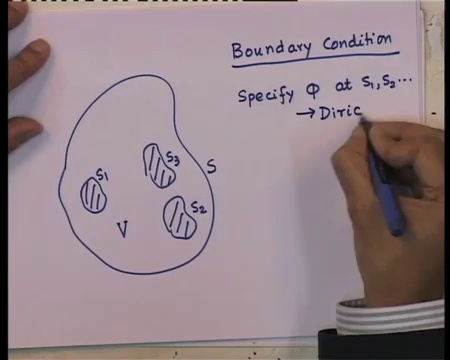 Boundary Condition
Specify Φ at S1, S2...
→ Diric
S1
S3
S
S2
V